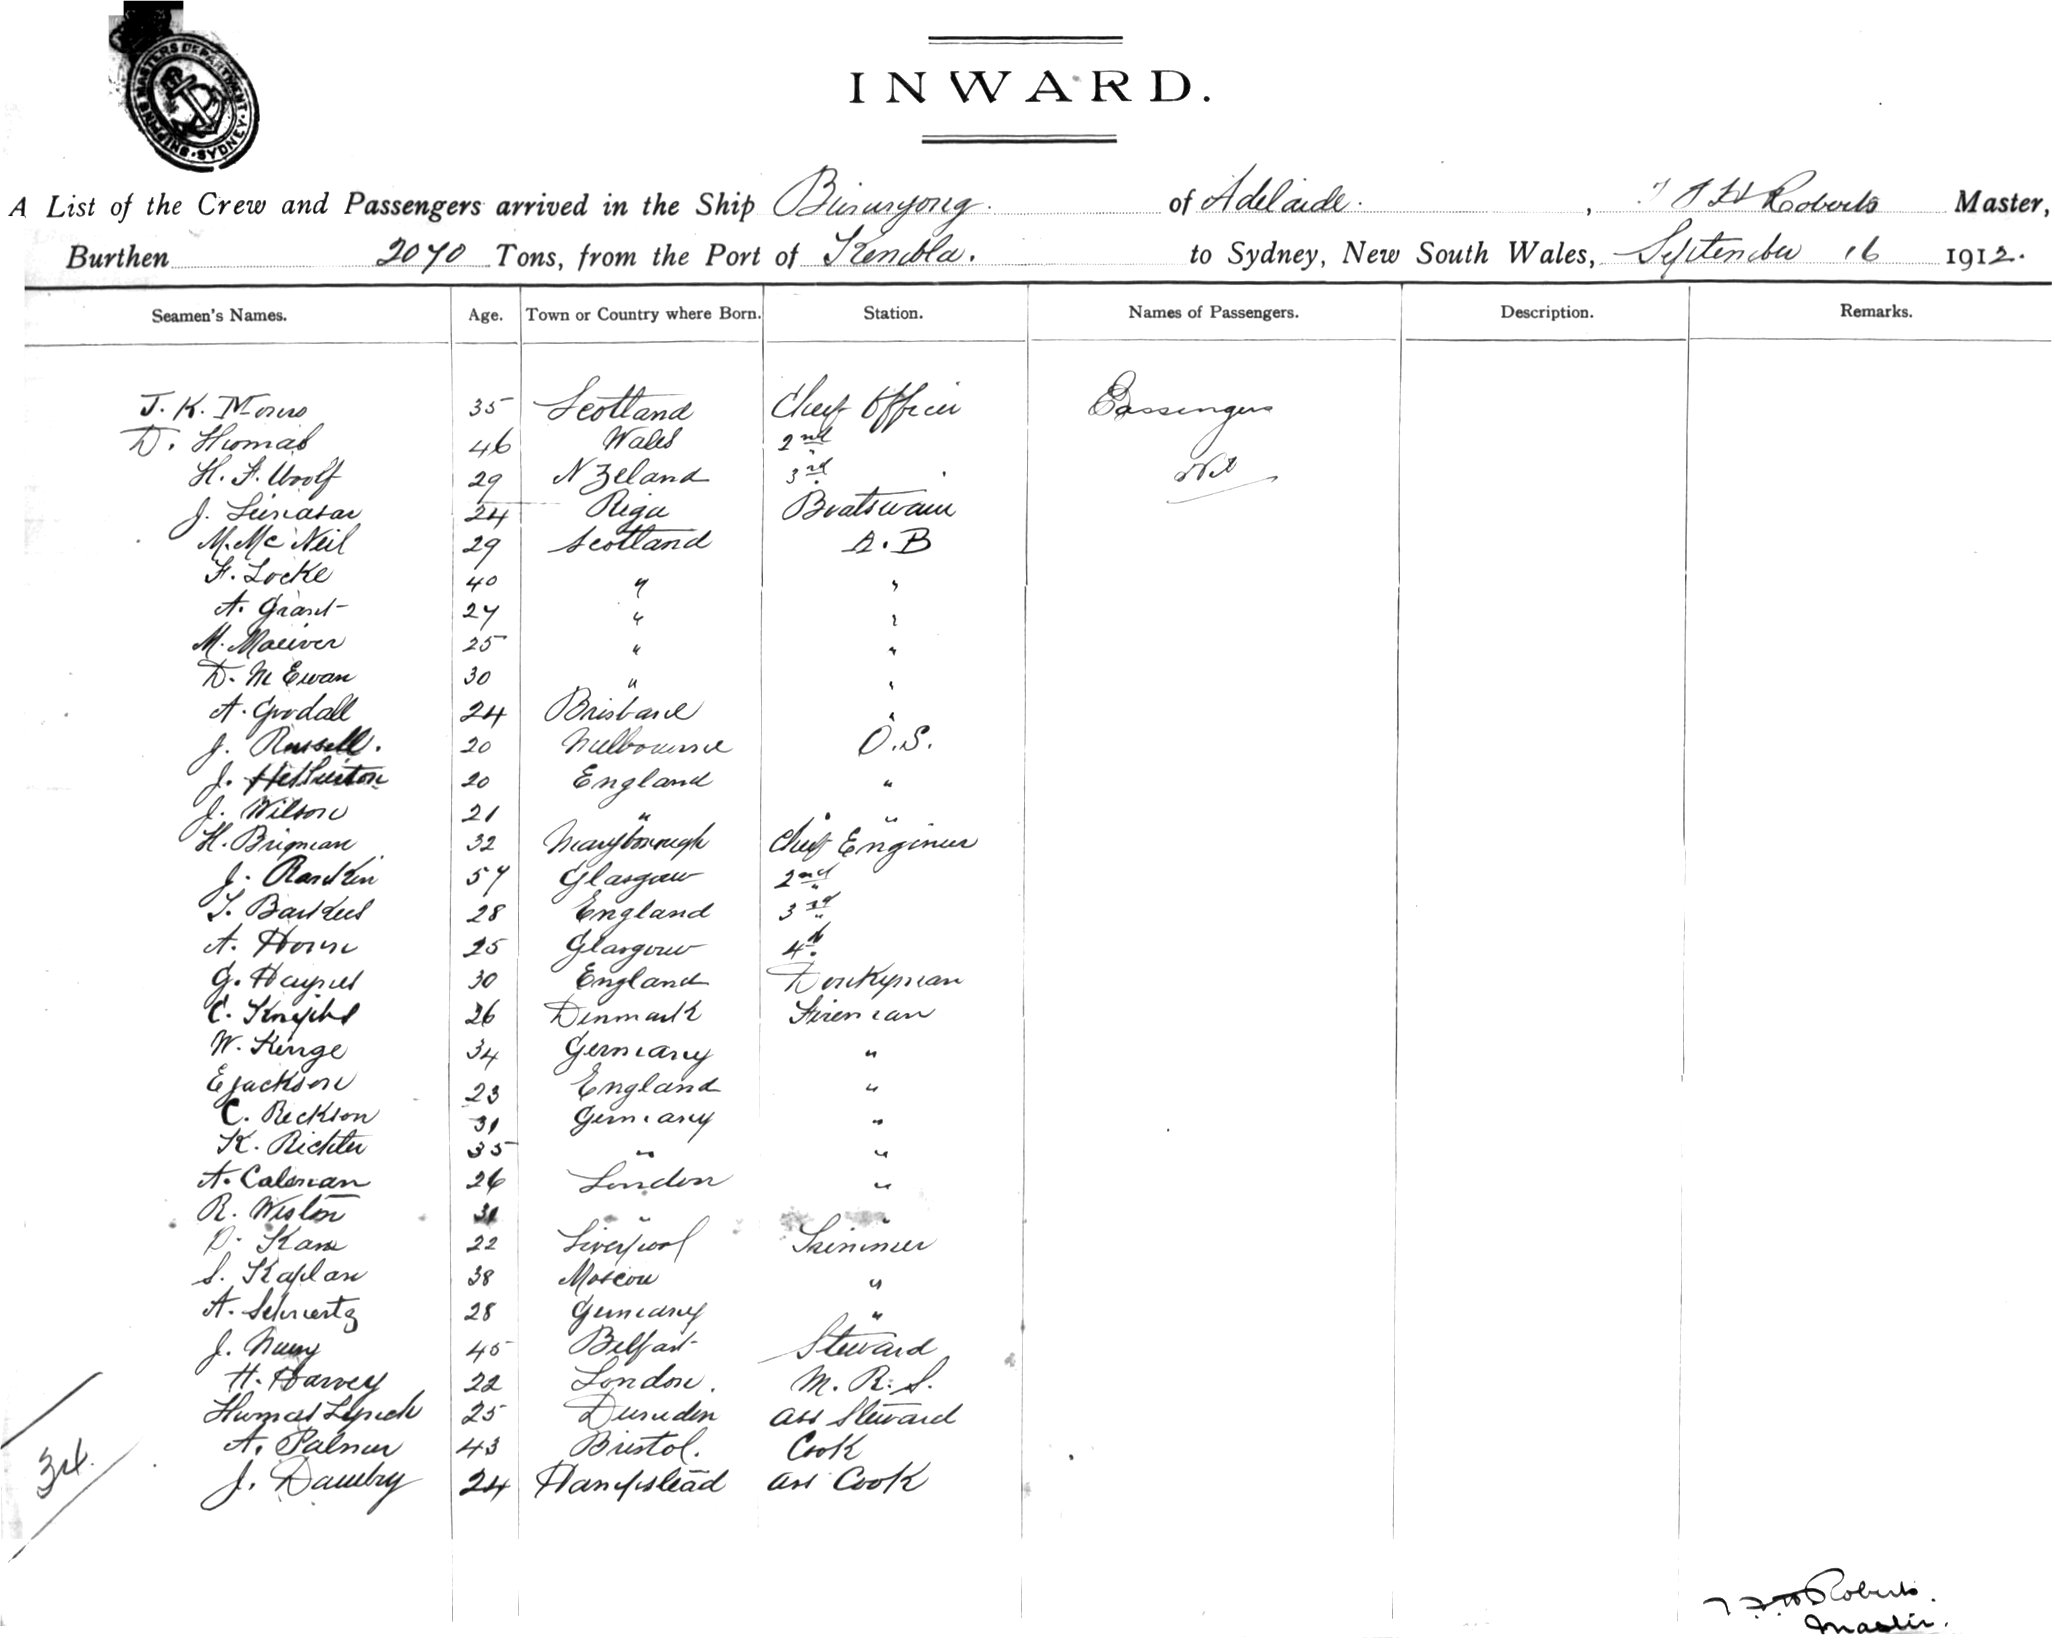 SHIPPING MASTERS DEPARTMENT · SYDNEY ·
INWARD.
A List of the Crew and Passengers arrived in the Ship Buninyong. of Adelaide. , Roberts Master,
Burthen 2070 Tons, from the Port of Kembla. to Sydney, New South Wales, September 16 1912.
Seamen's Names. Age. Town or Country where Born. Station. Names of Passengers. Description. Remarks.
J. K. Monro 35 Scotland Chief Officer Passengers
D. Thomas 46 Wales 2nd "
H. F. Woolf 29 N Zeland 3rd " Nil
J. 24 Riga Boatswain
M. Mc Neil 29 Scotland A. B
F. Locke 40 " "
A. Grant 27 " "
M. Maciver 25 " "
D. McEwan 30 " "
A. Goodall 24 Brisbane "
J. Russell. 20 Melbourne O.S.
J. 20 England "
J. Wilson 21 " "
H. Brigman 32 Maryborough Chief Engineer
J. Rankin 57 Glasgow 2nd "
T. 28 England 3rd "
A. Horn 25 Glasgow 4th "
G. Haynes 30 England Donkyman
C. 26 Denmark Fireman
W. Kinge 34 Germany "
E Jackson 23 England "
C. Reckson 31 Germany "
K. Richter 35 " "
A. Caleman 26 London "
R. Weston 31 " "
D. Kane 22 Liverpool Trimmer
S. Kaplan 38 Moscow "
A. Schwertz 28 Germany "
J. 45 Belfast Steward
H. Harvey 22 London. M. R. S.
Thomas Lynch 25 Dunedin ass Steward
A. Palmer 43 Bristol. Cook
34. J. Dauby 24 Hampstead ass Cook
Roberts.
Master.